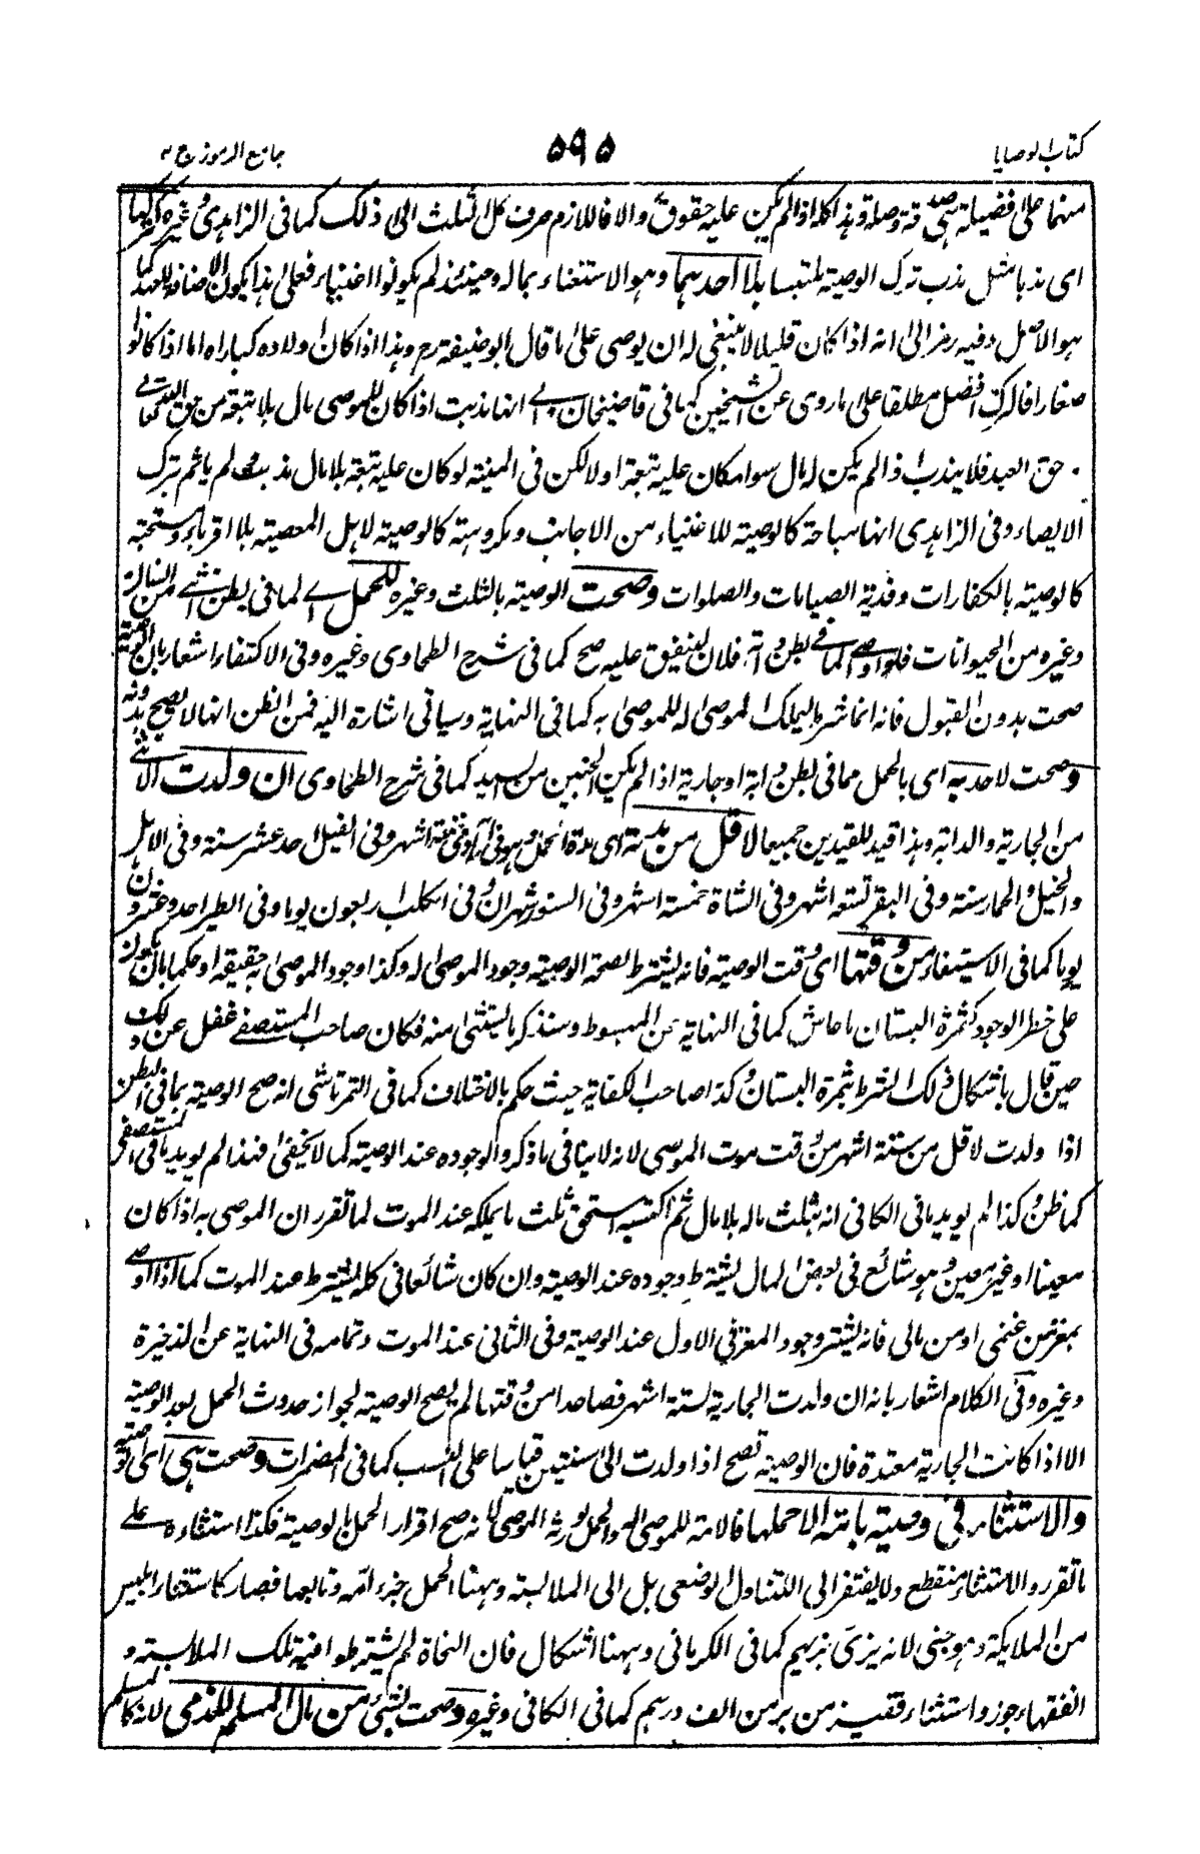 كتاب الوصايا ٥٩٥ جامع الرموز ج ٢
منهما على فضيلة هبى صدقة وصلة وهذا كله اذا لم يكن عليه حقوق والا فاللازم صرف كل الثلث الى ذلك كما فى الزاهدى وغيره كتركها
اى ندبا مثل ندب ترك الوصية ملتبسا بلا احدهما وهو الاستغناء بماله وحينئذ لم يكونوا اغنياء فعلى هذا يكون الاضافة للعهد كما
هو الاصل وفيه رمز الى انه اذا كان قليلا لا ينبغى له ان يوصى على ما قال ابو حنيفة رح وهذا اذا كان اولاده كبارا اما اذا كانوا
صغارا فالترك افضل مطلقا على ما روى عن الشيخين كما فى قاضيخان اى انها ندبت اذا كان للموصى مال بلا تبعة من حق الله تعالى
حق العبد فلا يندب اذا لم يكن له مال سواء كان عليه تبعة او لا لكن فى المنية لو كان عليه تبعة بلا مال ندبت ولم ياثم بترك
الايصاء وفى الزاهدى انها مباحة كالوصية للاغنياء من الاجانب ومكروهة كالوصية لاهل المعصية بلا اقرباء ومستحبة
كالوصية بالكفارات وفدية الصيامات والصلوات وصحت الوصية بالثلث وغيره للحمل اى لما فى بطن انثى من
وغيره من الحيوانات فلو اوصى لما فى بطن دابة فلان لينفق عليه صح كما فى شرح الطحاوى وغيره وفى الاكتفاء اشعار بان الوصية
صحت بدون القبول فانه انما شرط ليملك الموصى له للموصى به كما فى النهاية وسياتى اشارة اليه فمن الظن انها لا يصح بدونه
وصحت لاحد به اى بالحمل مما فى بطن دابة او جارية اذا لم يكن الجنين من السيد كما فى شرح الطحاوى ان ولدت الانثى
من الجارية والدابة وهذا قيد للقيدين جميعا لاقل من مدته اى مدة الحمل وهو فى ستة اشهر وفى الفيل احد عشر سنة وفى الابل
والخيل والحمار سنة وفى البقر تسعة اشهر وفى الشاة خمسة اشهر وفى السنور شهران وفى الكلب اربعون يوما وفى الطير احد وعشرون
يوما كما فى الاستيفاء من وقتها اى وقت الوصية فانه يشترط لصحة الوصية وجود الموصى له وكذا وجود الموصى به حقيقة او حكما بان يكون
على خطر الوجود كثمرة البستان ما عاش كما فى النهاية عن المبسوط وسنذكر ما يستثنى منه فكان صاحب المستصفى غفل عن ذلك
حين قال باشكال ذلك الشرط بثمرة البستان وكذا صاحب الكفاية حيث حكم بالاختلاف كما فى التمرتاشى انه صح الوصية بما فى البطن
اذا ولدت لاقل من ستة اشهر من وقت موت الموصى لانه لا ينافى ما ذكر والوجوده عند الوصية كما لا يخفى فهذا لم يويد ما فى المستصفى
كما ظن وكذا لم يويد ما فى الكافى انه بثلث ماله بلا مال ثم اكتسبه استحق ثلث ما يملكه عند الموت لما تقرر ان الموصى به اذا كان
معينا او غير معين وهو شائع فى بعض المال يشترط وجوده عند الوصية وان كان شائعا فى كله يشترط عند الموت كما اذا اوصى
بمعز من غنمى او من مالى فانه يشترط وجود المعز فى الاول عند الوصية وفى الثانى عند الموت وتمامه فى النهاية عن الذخيرة
وغيره وفى الكلام اشعار بانه ان ولدت الجارية لستة اشهر فصاعدا من وقتها لم يصح الوصية لجواز حدوث الحمل بعد الوصية
الا اذا كانت الجارية معتدة فان الوصية تصح اذا ولدت الى سنتين قياسا على النسب كما فى المضمرات وصحت هى اى الوصية
والاستثناء فى وصيته بامته الا حملها فالامة للموصى له والحمل لورثة الموصى لانه صح اقرار الحمل بالوصية فكذا استثناءه على
ما تقرر والاستثناء منقطع ولا يفتقر الى التناول الوضعى بل الى الملابسة وههنا الحمل جزء امه وتابعها فصار كاستثناء ابليس
من الملايكة وهو جنى لانه يزى بزيهم كما فى الكرمانى وههنا اشكال فان النحاة لم يشترطوا فيه تلك الملابسة و
الفقهاء جوزوا استثناء قفيز من بر من الف درهم كما فى الكافى وغيره وصحت لشئ من مال المسلم للذمى لانه كالمسلم